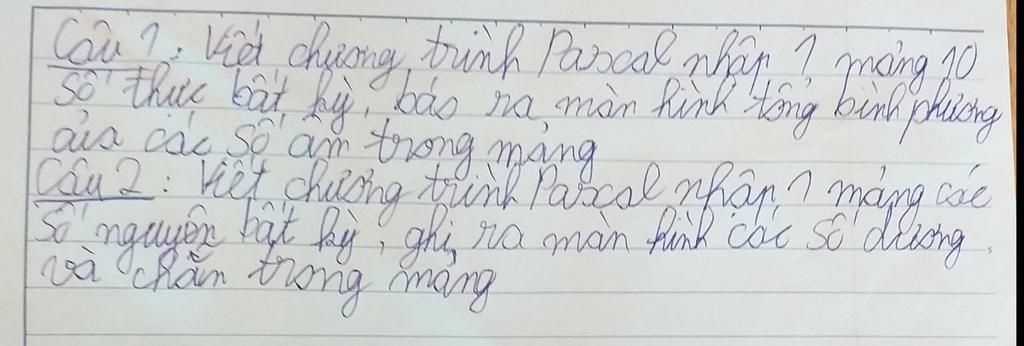 Câu 1: Viết chương trình Pascal nhập 1 mảng 10
số thực bất kỳ, báo ra màn hình tổng bình phương
của các số âm trong mảng
Câu 2: Viết chương trình Pascal nhập 1 mảng các
số nguyên bất kỳ, ghi ra màn hình các số dương,
và chẵn trong mảng